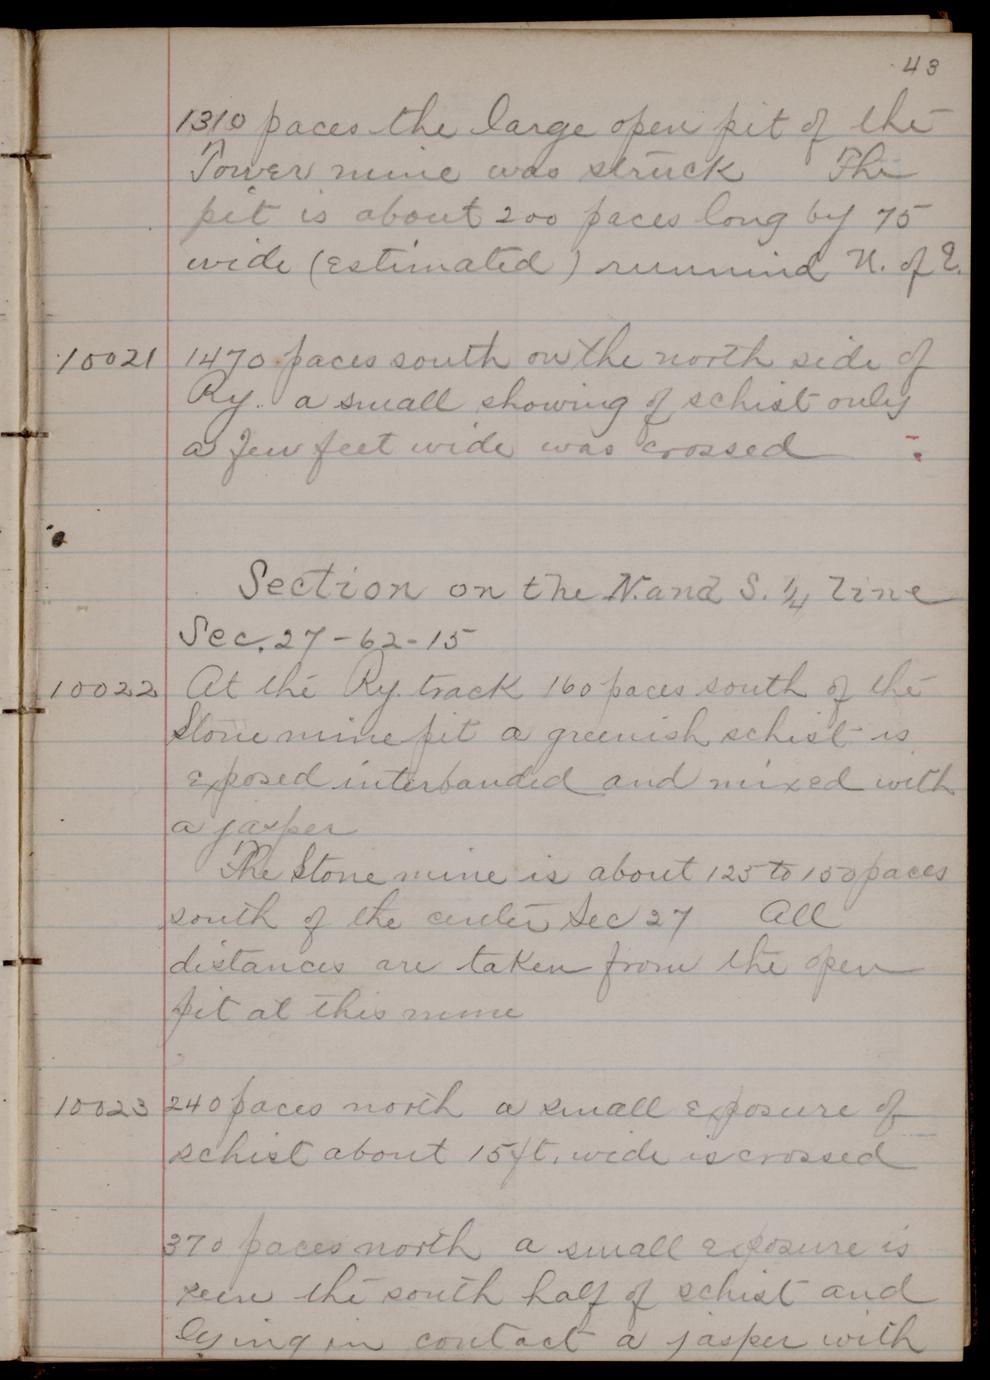 43
1310 paces the large open pit of the
Tower mine was struck The
pit is about 200 paces long by 75
wide (estimated) runnind N. of E.
10021 1470 paces south on the north side of
Ry. a small showing of schist only
a few feet wide was crossed
Section on the N. and S. 1/4 line
Sec. 27-62-15
10022 At the Ry. track 160 paces south of the
Stone mine pit a greenish schist is
exposed interbanded and mixed with
a jasper
The Stone mine is about 125 to 150 paces
south of the center Sec 27 All
distances are taken from the open
pit at this mine
10023 240 paces north a small exposure of
schist about 15 ft. wide is crossed
370 paces north a small exposure is
seen the south half of schist and
lying in contact a jasper with